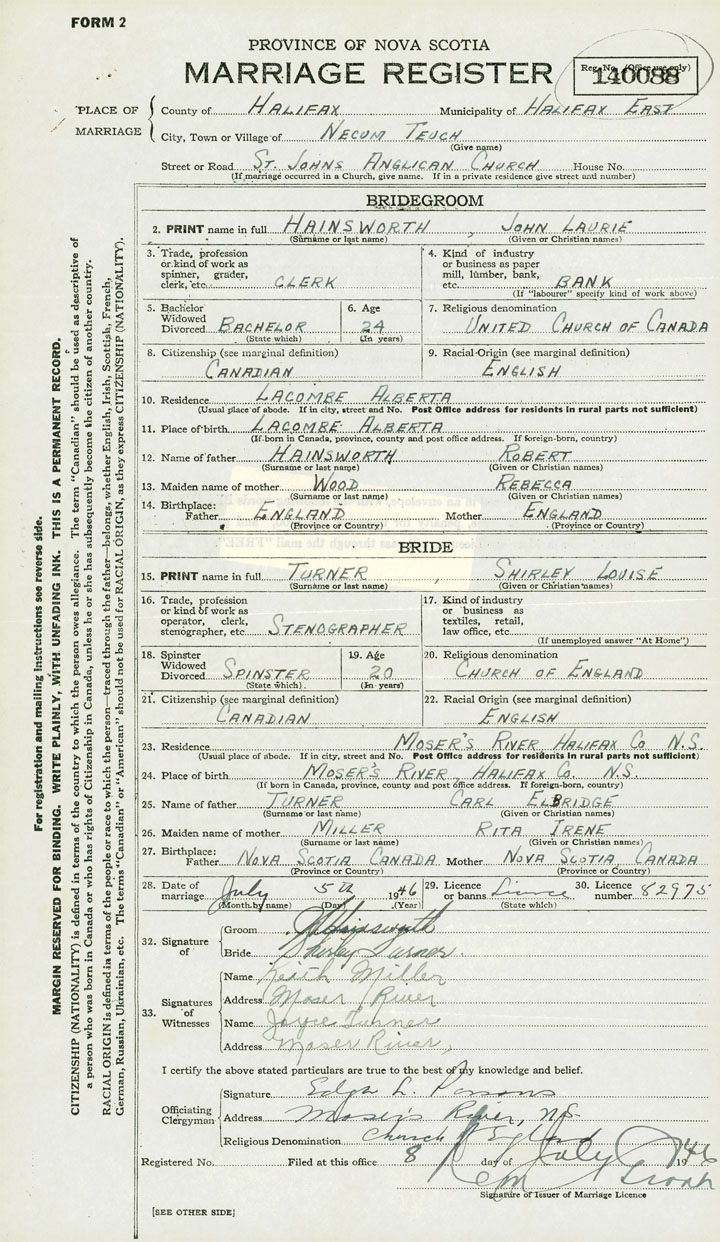 FORM 2
PROVINCE OF NOVA SCOTIA
MARRIAGE REGISTER
Reg. No. (Office use only)
140088
PLACE OF MARRIAGE
County of HALIFAX Municipality of HALIFAX EAST
City, Town or Village of NECUM TEUCH
(Give name)
Street or Road ST. JOHNS ANGLICAN CHURCH House No.
(If marriage occurred in a Church, give name. If in a private residence give street and number)
BRIDEGROOM
2. PRINT name in full HAINSWORTH , JOHN LAURIE
(Surname or last name) (Given or Christian names)
3. Trade, profession
or kind of work as
spinner, grader,
clerk, etc. CLERK
4. Kind of industry
or business as paper
mill, lumber, bank,
etc. BANK
(If "labourer" specify kind of work above)
5. Bachelor
Widowed
Divorced BACHELOR
(State which)
6. Age
24
(In years)
7. Religious denomination
UNITED CHURCH OF CANADA
8. Citizenship (see marginal definition)
CANADIAN
9. Racial Origin (see marginal definition)
ENGLISH
10. Residence LACOMBE ALBERTA
(Usual place of abode. If in city, street and No. Post Office address for residents in rural parts not sufficient)
11. Place of birth LACOMBE ALBERTA
(If born in Canada, province, county and post office address. If foreign-born, country)
12. Name of father HAINSWORTH ROBERT
(Surname or last name) (Given or Christian names)
13. Maiden name of mother WOOD REBECCA
(Surname or last name) (Given or Christian names)
14. Birthplace:
Father ENGLAND Mother ENGLAND
(Province or Country) (Province or Country)
BRIDE
15. PRINT name in full TURNER , SHIRLEY LOUISE
(Surname or last name) (Given or Christian names)
16. Trade, profession
or kind of work as
operator, clerk,
stenographer, etc. STENOGRAPHER
17. Kind of industry
or business as
textiles, retail,
law office, etc.
(If unemployed answer "At Home")
18. Spinster
Widowed
Divorced SPINSTER
(State which)
19. Age
20
(In years)
20. Religious denomination
CHURCH OF ENGLAND
21. Citizenship (see marginal definition)
CANADIAN
22. Racial Origin (see marginal definition)
ENGLISH
23. Residence MOSER'S RIVER HALIFAX CO N.S.
(Usual place of abode. If in city, street and No. Post Office address for residents in rural parts not sufficient)
24. Place of birth MOSER'S RIVER, HALIFAX CO. N.S.
(If born in Canada, province, county and post office address. If foreign-born, country)
25. Name of father TURNER CARL ELBRIDGE
(Surname or last name) (Given or Christian names)
26. Maiden name of mother MILLER RITA IRENE
(Surname or last name) (Given or Christian names)
27. Birthplace:
Father NOVA SCOTIA CANADA Mother NOVA SCOTIA, CANADA
(Province or Country) (Province or Country)
28. Date of
marriage July 5th 1946
(Month by name) (Day) (Year)
29. Licence
or banns
(State which)
30. Licence
number 82975
32. Signature of
Groom Hainsworth
Bride Shirley Turner.
33. Signatures of Witnesses
Name Keith Miller
Address Moser River
Name Joyce Turner
Address Moser River,
I certify the above stated particulars are true to the best of my knowledge and belief.
Officiating Clergyman
Signature L. Parsons
Address Moser's River, NS
Religious Denomination Church of England
Registered No. Filed at this office 8 day of July 1946
Signature of Issuer of Marriage Licence
[SEE OTHER SIDE]
For registration and mailing instructions see reverse side.
MARGIN RESERVED FOR BINDING. WRITE PLAINLY, WITH UNFADING INK. THIS IS A PERMANENT RECORD.
CITIZENSHIP (NATIONALITY) is defined in terms of the country to which the person owes allegiance. The term "Canadian" should be used as descriptive of
a person who was born in Canada or who has rights of Citizenship in Canada, unless he or she has subsequently become the citizen of another country.
RACIAL ORIGIN is defined in terms of the people or race to which the person—traced through the father—belongs, whether English, Irish, Scottish, French,
German, Russian, Ukrainian, etc. The terms "Canadian" or "American" should not be used for RACIAL ORIGIN, as they express CITIZENSHIP (NATIONALITY).